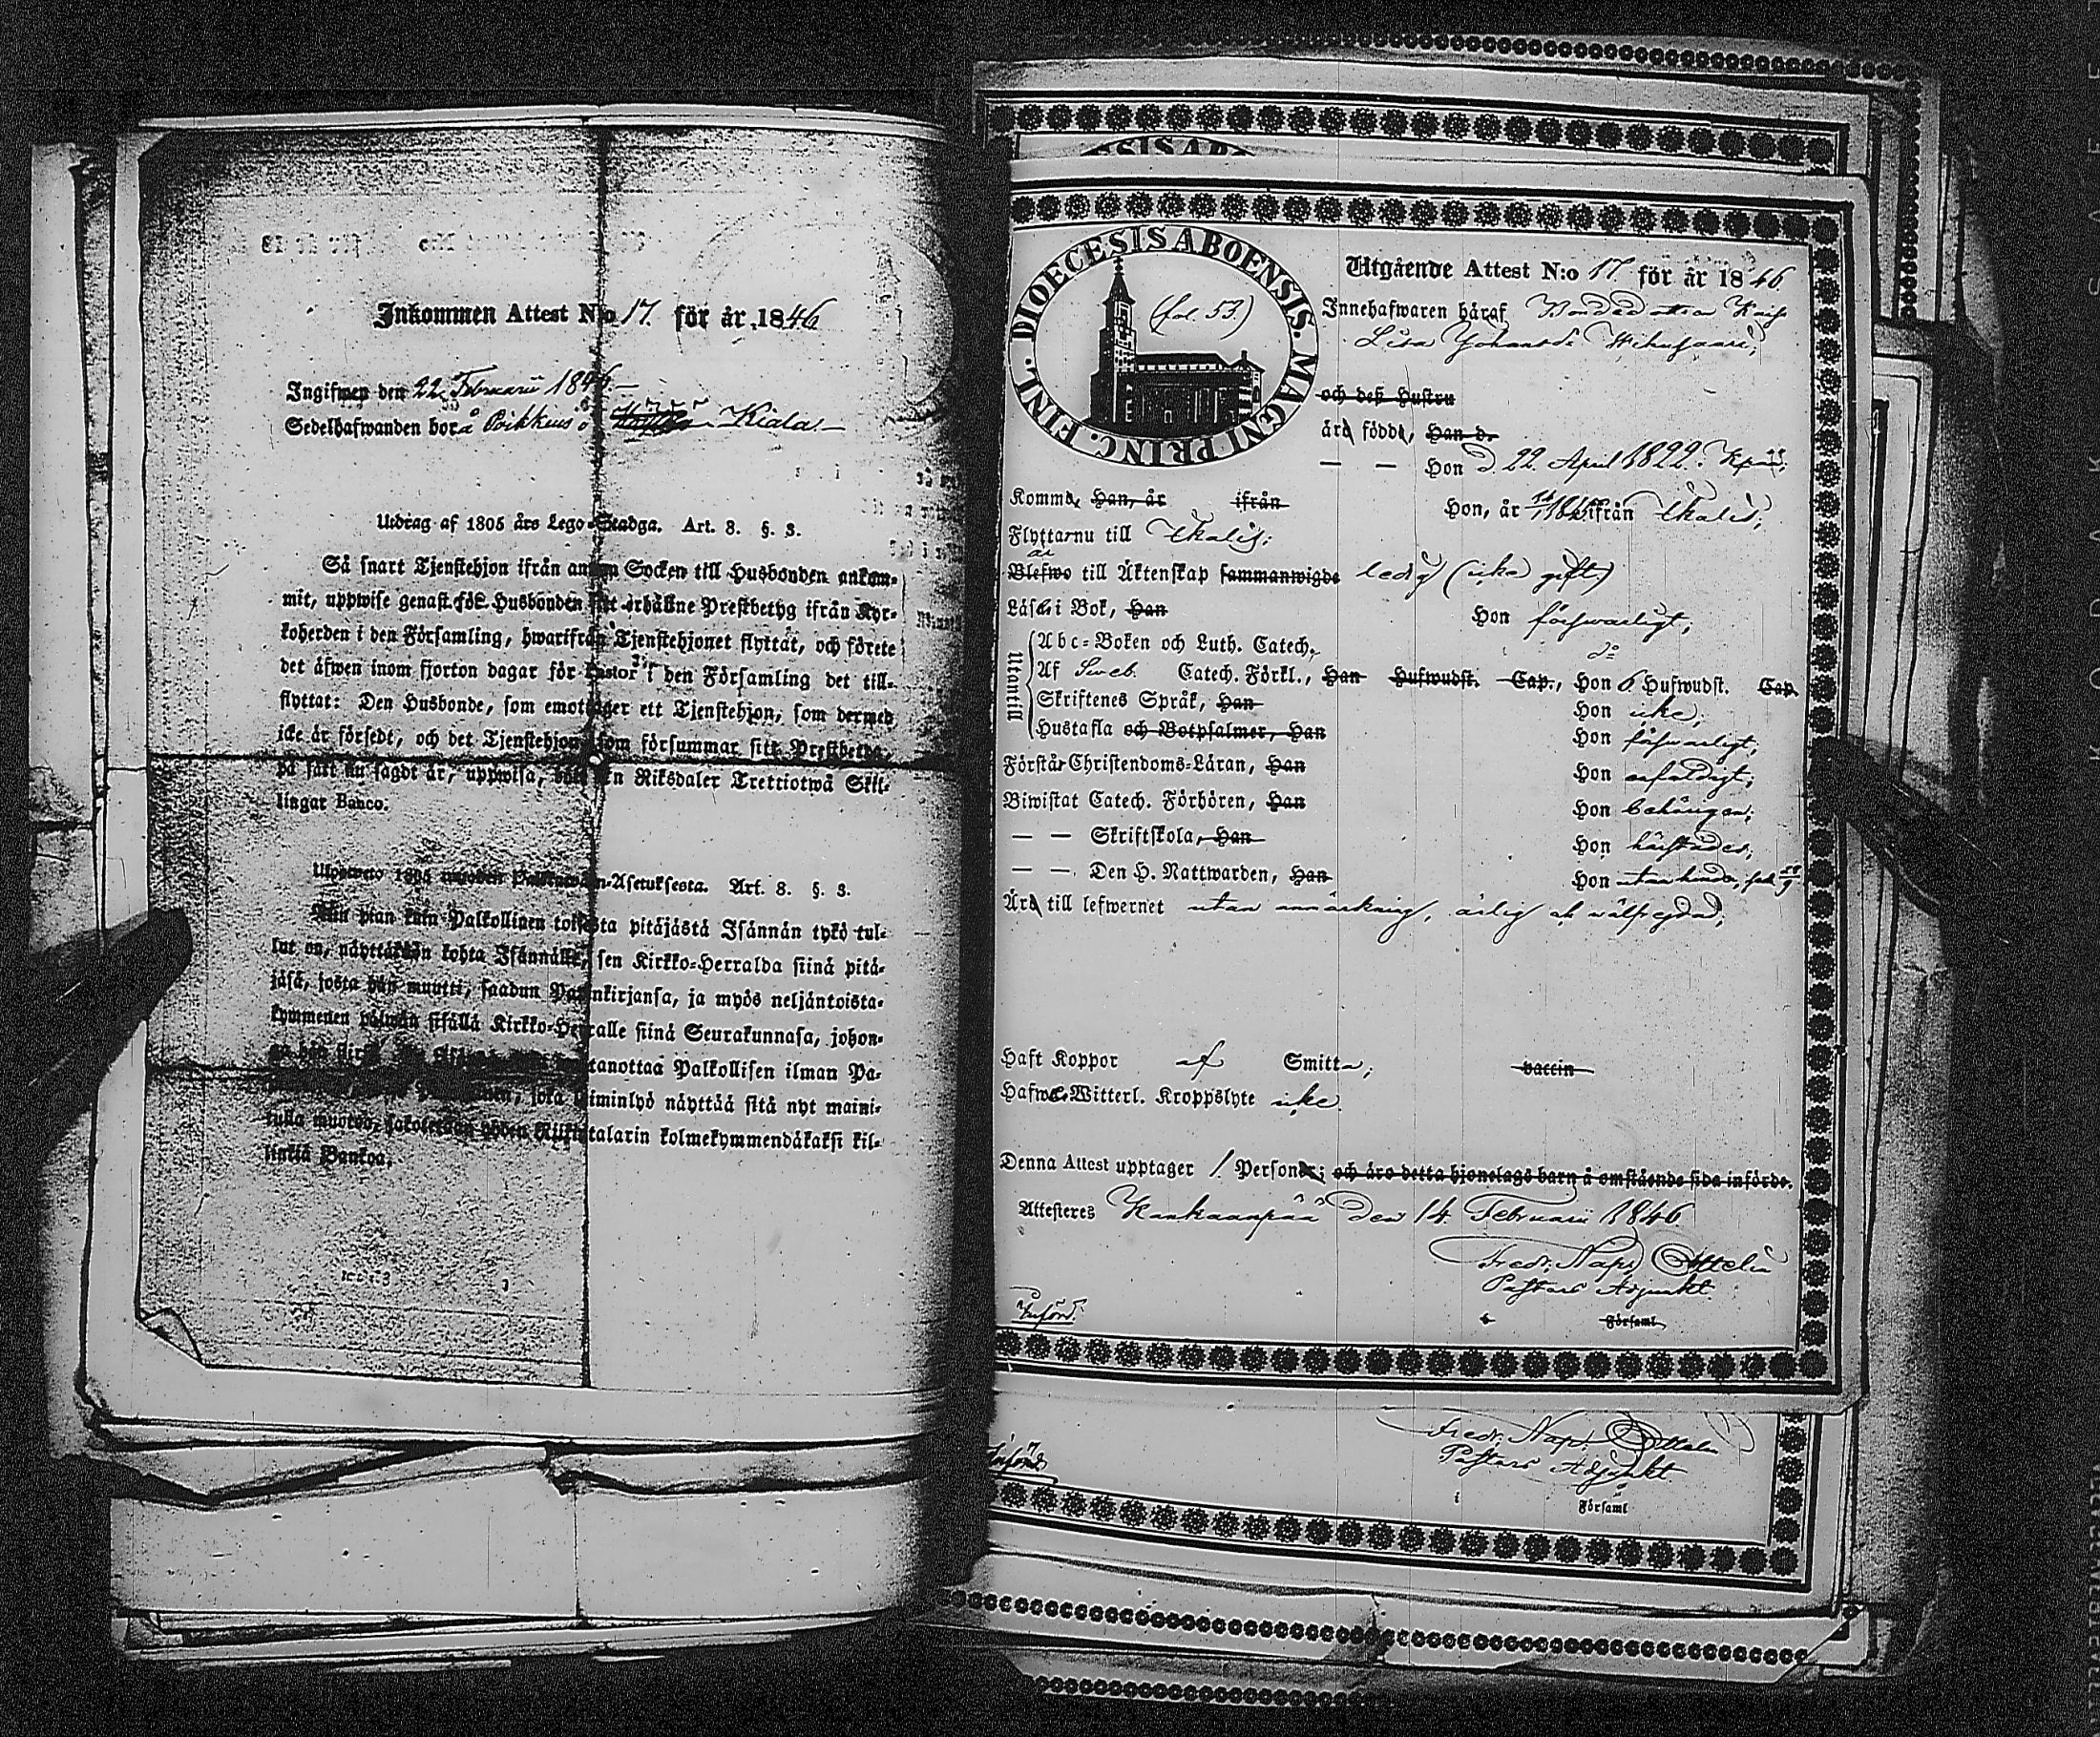 Inkommen Attest N:o 17. för år 1846
Ingifwen den 22 Februarii 1846
Sedelhafwanden bor å Poikkeus Kiala.
Utdrag af 1805 års Lego-Stadga. Art. 8. §. 3.
Så snart Tjenstehjon ifrån annan Socken till Husbonden ankom-
mit, uppwise genast för Husbonden sitt erhållne Prestbetyg ifrån Kyr-
koherden i den Församling, hwarifrån Tjenstehjonet flyttat, och förete
det äfwen inom fjorton dagar för Pastor i den Församling det till-
flyttat: Den Husbonde, som emottager ett Tjenstehjon, som dermed
icke är försedt, och det Tjenstehjon som försummar sitt Prestbetyg,
på sätt nu sagdt är, uppwisa, böte En Riksdaler Trettiotwå Skil-
lingar Banco.
Ulosweto 1805 wuoden Palkowäen-Asetuksesta. Art. 8. §. 3.
Niin pian kuin Palkollinen toisesta pitäjästä Isännän tykö tul-
lut on, näyttäkään kohta Isännälle, sen Kirkko-Herralda siinä pitä-
jäsä, josta hän muutti, saadun Papinkirjansa, ja myös neljäntoista-
kymmenen päiwän sisällä Kirkko-Herralle siinä Seurakunnasa, johon-
tanottaa Palkollisen ilman Pa-
jota laiminlyö näyttää sitä nyt maini-
tulla muoton, sakoitetaan yhden Riikintalarin kolmekymmendäkaksi kil-
linkiä Bankoa.
DIOECESIS ABOENSIS. MAGNI PRINC. FINL.
(fol. 53.)
Utgående Attest N:o 17 för år 1846
Innehafwaren häraf Bondedottren Kaisa
Lisa Johansd:r
och deß Hustru
ärd födde, Han d.
— — Hon d. 22 April 1822.
Komma, Han, år ifrån Hon, år ifrån Ikalis,
Flyttarnu till Ikalis;
är
Blefwo till Äktenskap sammanwigde ledig (icke gift)
Läsa i Bok, Han Hon försvarligt,
Utantill
Abc-Boken och Luth. Catech. d:o
Af Sweb. Catech. Förkl., Han Hufwudst. Cap., Hon 6 Hufwudst. Cap.
Skriftenes Språk, Han Hon icke,
Hustafla och Botpsalmer, Han Hon försvarligt,
Förstår Christendoms-Läran, Han Hon enfaldigt,
Biwistat Catech. Förhören, Han Hon behörigen;
— — Skriftskola, Han Hon härstädes,
— — Den H. Nattwarden, Han Hon utan hinder,
Ärd till lefwernet utan anmärkning, ärlig och wälfrejdad,
Haft Koppor af Smitta, vaccin
Hafwe Witterl. Kroppslyte icke.
Denna Attest upptager 1. Personer; och äro detta hjonelags barn å omstående sida införde.
Attesteres Kankaanpää den 14. Februarii 1846
Fredr. Nap. Ottelin
Pastors Adjunkt.
Församl.
Införd.
Fredr. Nap. Ottelin
Pastors Adjunkt
Införd
i Församl